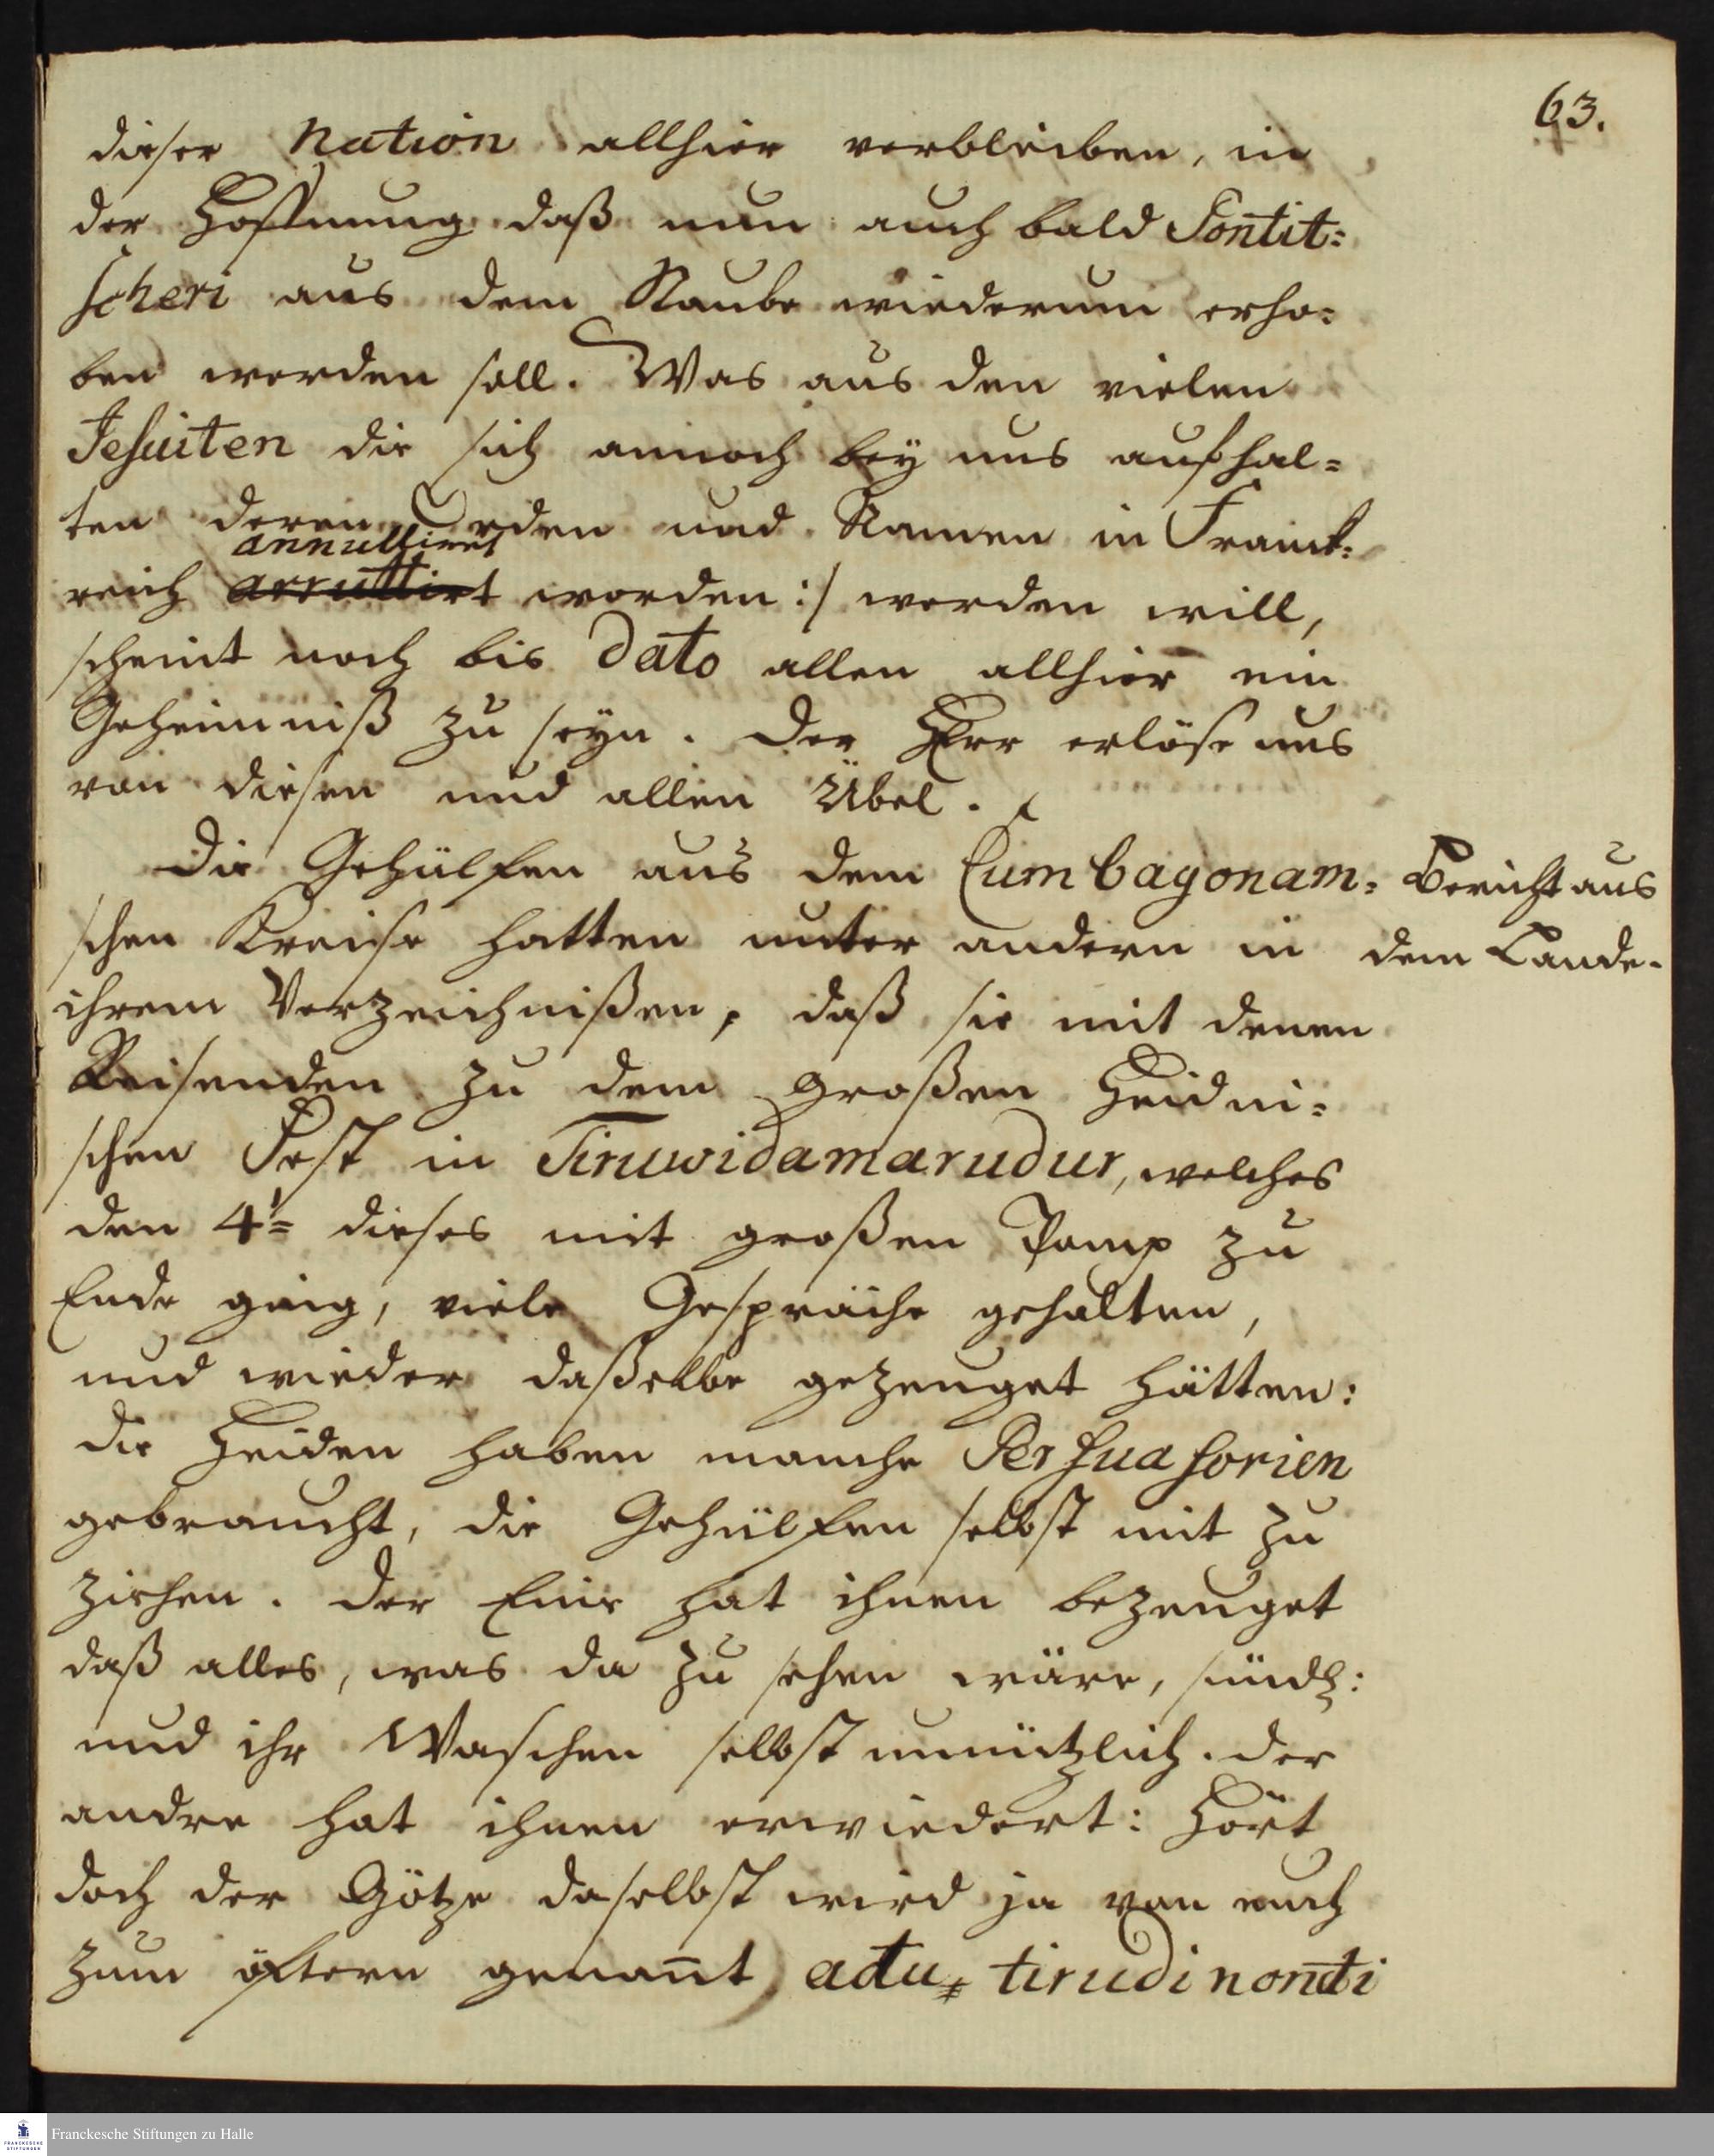 63.
dieser Nation allhier verbleiben, in
der Hoffnung daß nun auch bald Pontit=
scheri aus dem Staube wiederum erho=
ben werden soll. Was aus den vielen
Jesuiten die sich annoch bey uns aufhal=
ten deren Orden und Namen in Franck=
annulliret
reich arrullirt worden :/ werden will,
scheint noch bis Dato allen allhier ein
Geheimniß zu seyn. Der HErr erlöse uns
von diesen und allen Übel.
Die Gehülfen aus dem Cumbagonam=
Bericht aus
dem Lande.
schen Kreise hatten unter andern in
ihrem Verzeichnißen, daß sie mit denen
Reisenden zu dem großen Heidni=
schen Fest in Tiruwidamarudur, welches
den 4t= dieses mit großen Pomp zu
Ende ging, viele Gespräche gehalten,
und wieder daßelbe gezeuget hätten:
die Heiden haben manche Persuasorien
gebraucht, die Gehülfen selbst mit zu
ziehen. Der Eine hat ihnen bezeuget
daß alles, was da zu sehen wäre, sündl:
und ihr Waschen selbst unnützlich. der
andre hat ihnen erwiedert: Hört
doch der Götze daselbst wird ja von euch
zum öftern genan̄t adu= tirudinondi
Franckesche Stiftungen zu Halle
FRANCKESCHE STIFTUNGEN